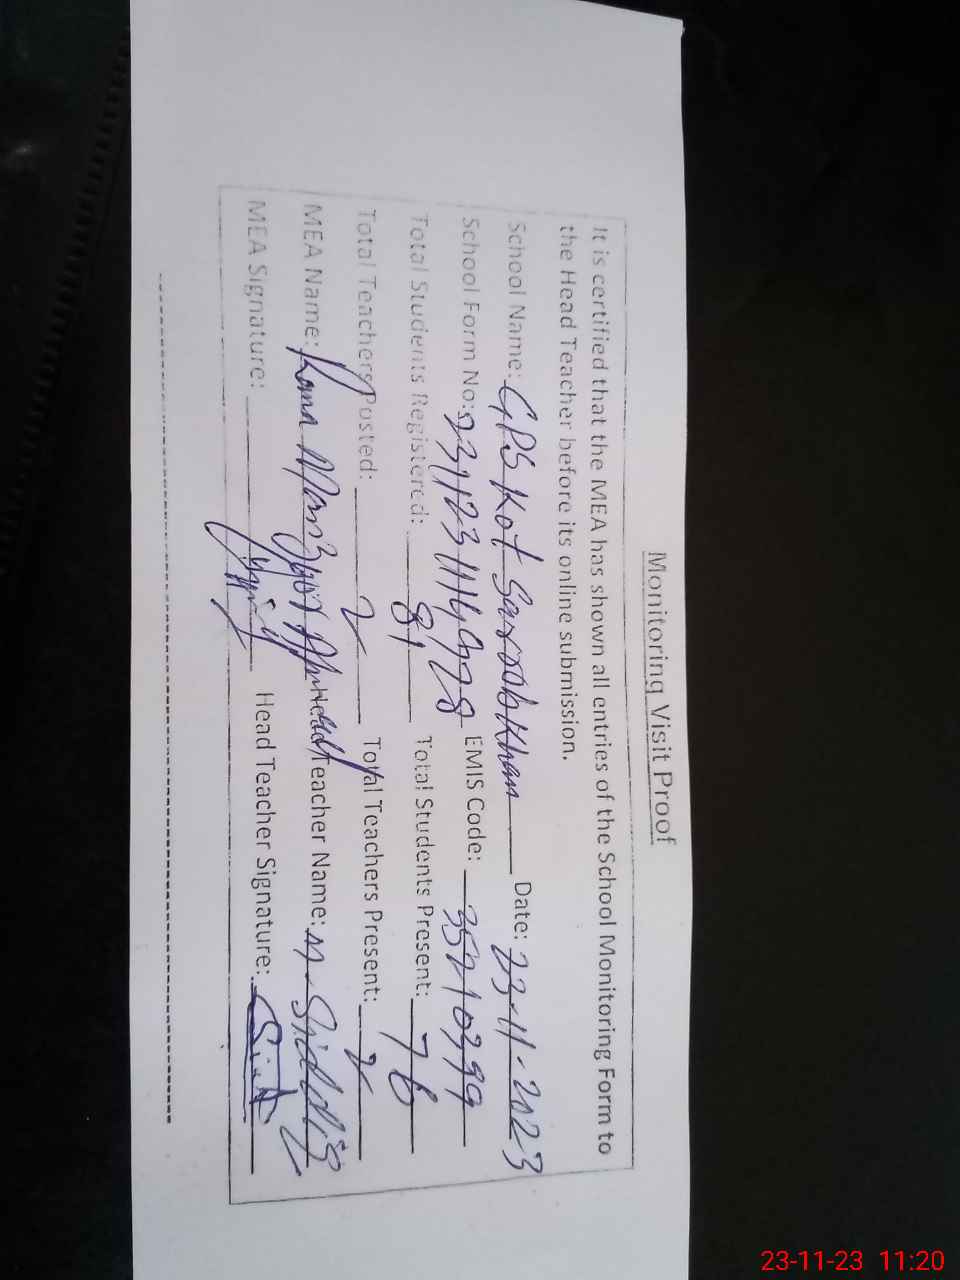 Monitoring Visit Proof
It is certified that the MEA has shown all entries of the School Monitoring Form to
the Head Teacher before its online submission.
School Name: GPS Kot Sardabkhan Date: 23-11-2023
School Form No: EMIS Code:
Total Students Registered: 81 Total Students Present: 76
Total Teachers Posted: 2 Total Teachers Present: 2
MEA Name: Rana Head Teacher Name: M. Siddiq
MEA Signature: Head Teacher Signature:
23-11-23 11:20